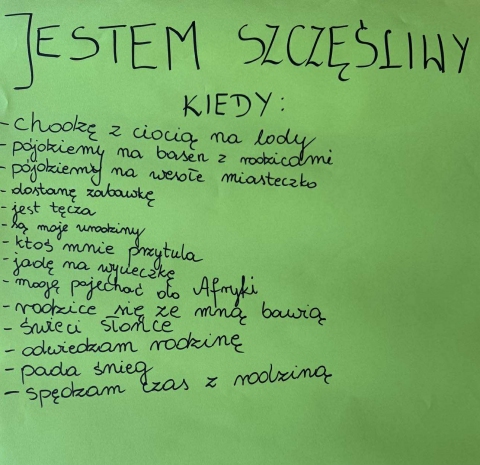 JESTEM SZCZĘŚLIWY
KIEDY:
- chodzę z ciocią na lody
- pójdziemy na basen z rodzicami
- pójdziemy na wesołe miasteczko
- dostanę zabawkę
- jest tęcza
- są moje urodziny
- ktoś mnie przytula
- jadę na wycieczkę
- mogę pojechać do Afryki
- rodzice się ze mną bawią
- świeci słońce
- odwiedzam rodzinę
- pada śnieg
- spędzam czas z rodziną